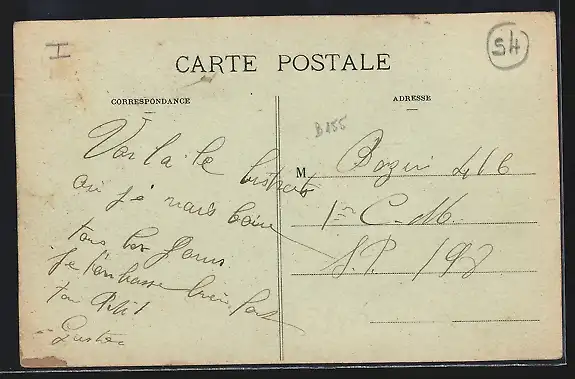 I
54
CARTE POSTALE
CORRESPONDANCE
ADRESSE
B155
Voila le bistrots
ou je vais boire
tous les jours
je t'embrasse bien fort
ton Petit
M Bozin 416
1er C. M.
S.P. 198